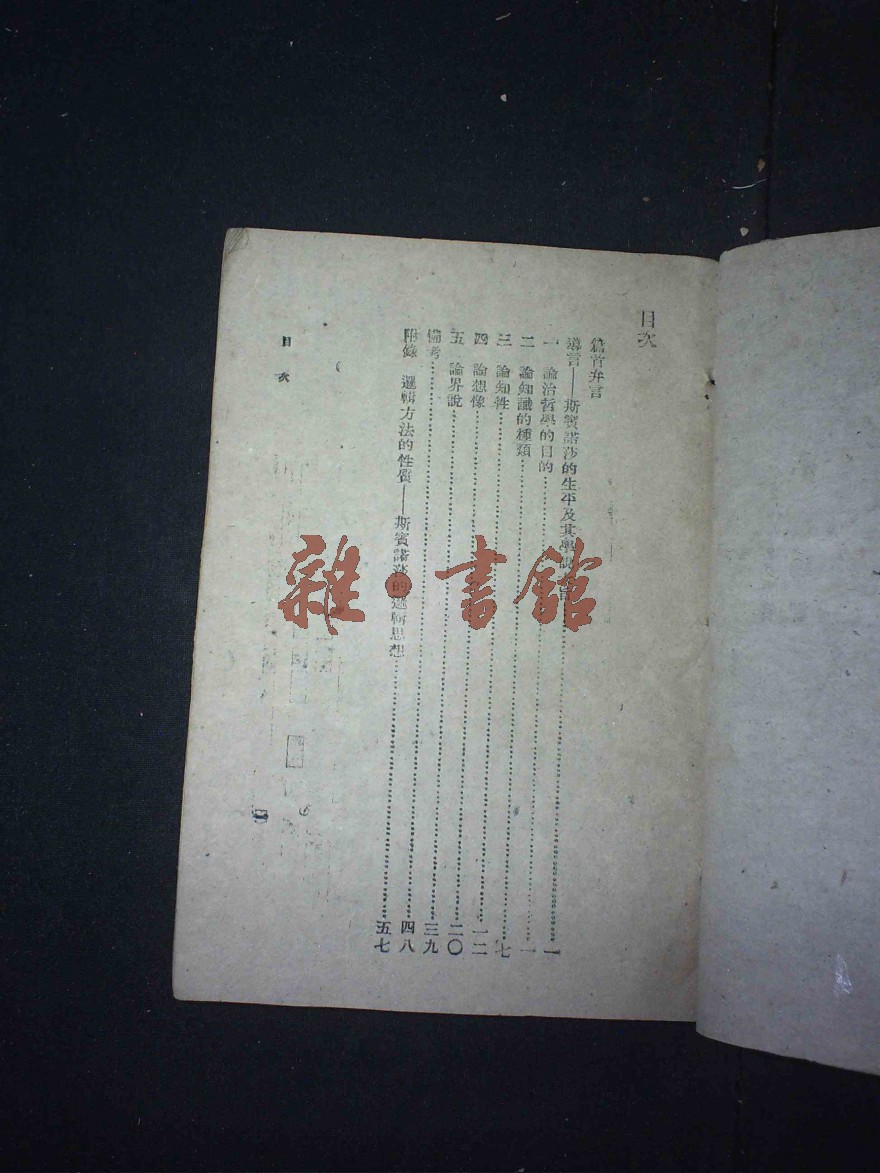 目次
篇首弁言
導言——斯賓諾莎的生平及其學說旨……一
一 論治哲學的目的……一
二 論知識的種類……七
三 論知性……一二
四 論想像……二〇
五 論界說……三九
備考……四八
附錄 邏輯方法的性質——斯賓諾莎的邏輯思想……五七
目次
一
雜·書館